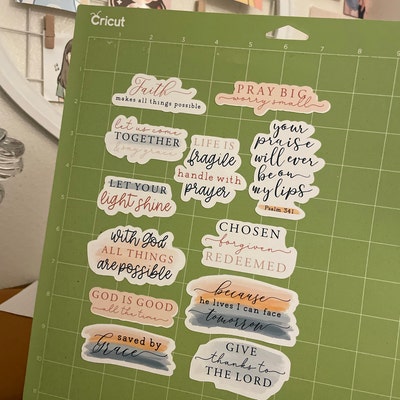 Cricut
1 2 3 4 5 6
Faith
makes all things possible
PRAY BIG
worry small
let us come
TOGETHER
LIFE IS
fragile
handle with
prayer
your
praise
will ever
be on
my lips
Psalm 34:1
LET YOUR
light shine
CHOSEN
forgiven
REDEEMED
with God
ALL THINGS
are possible
because
he lives I can face
tomorrow
GOD IS GOOD
all the time
saved by
Grace
GIVE
thanks to
THE LORD